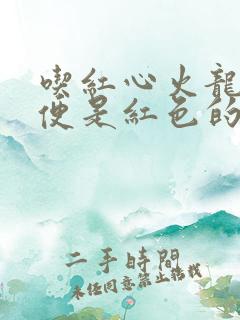 喫紅心火龍
便是紅色的
二手時間
未經同意禁止轉載